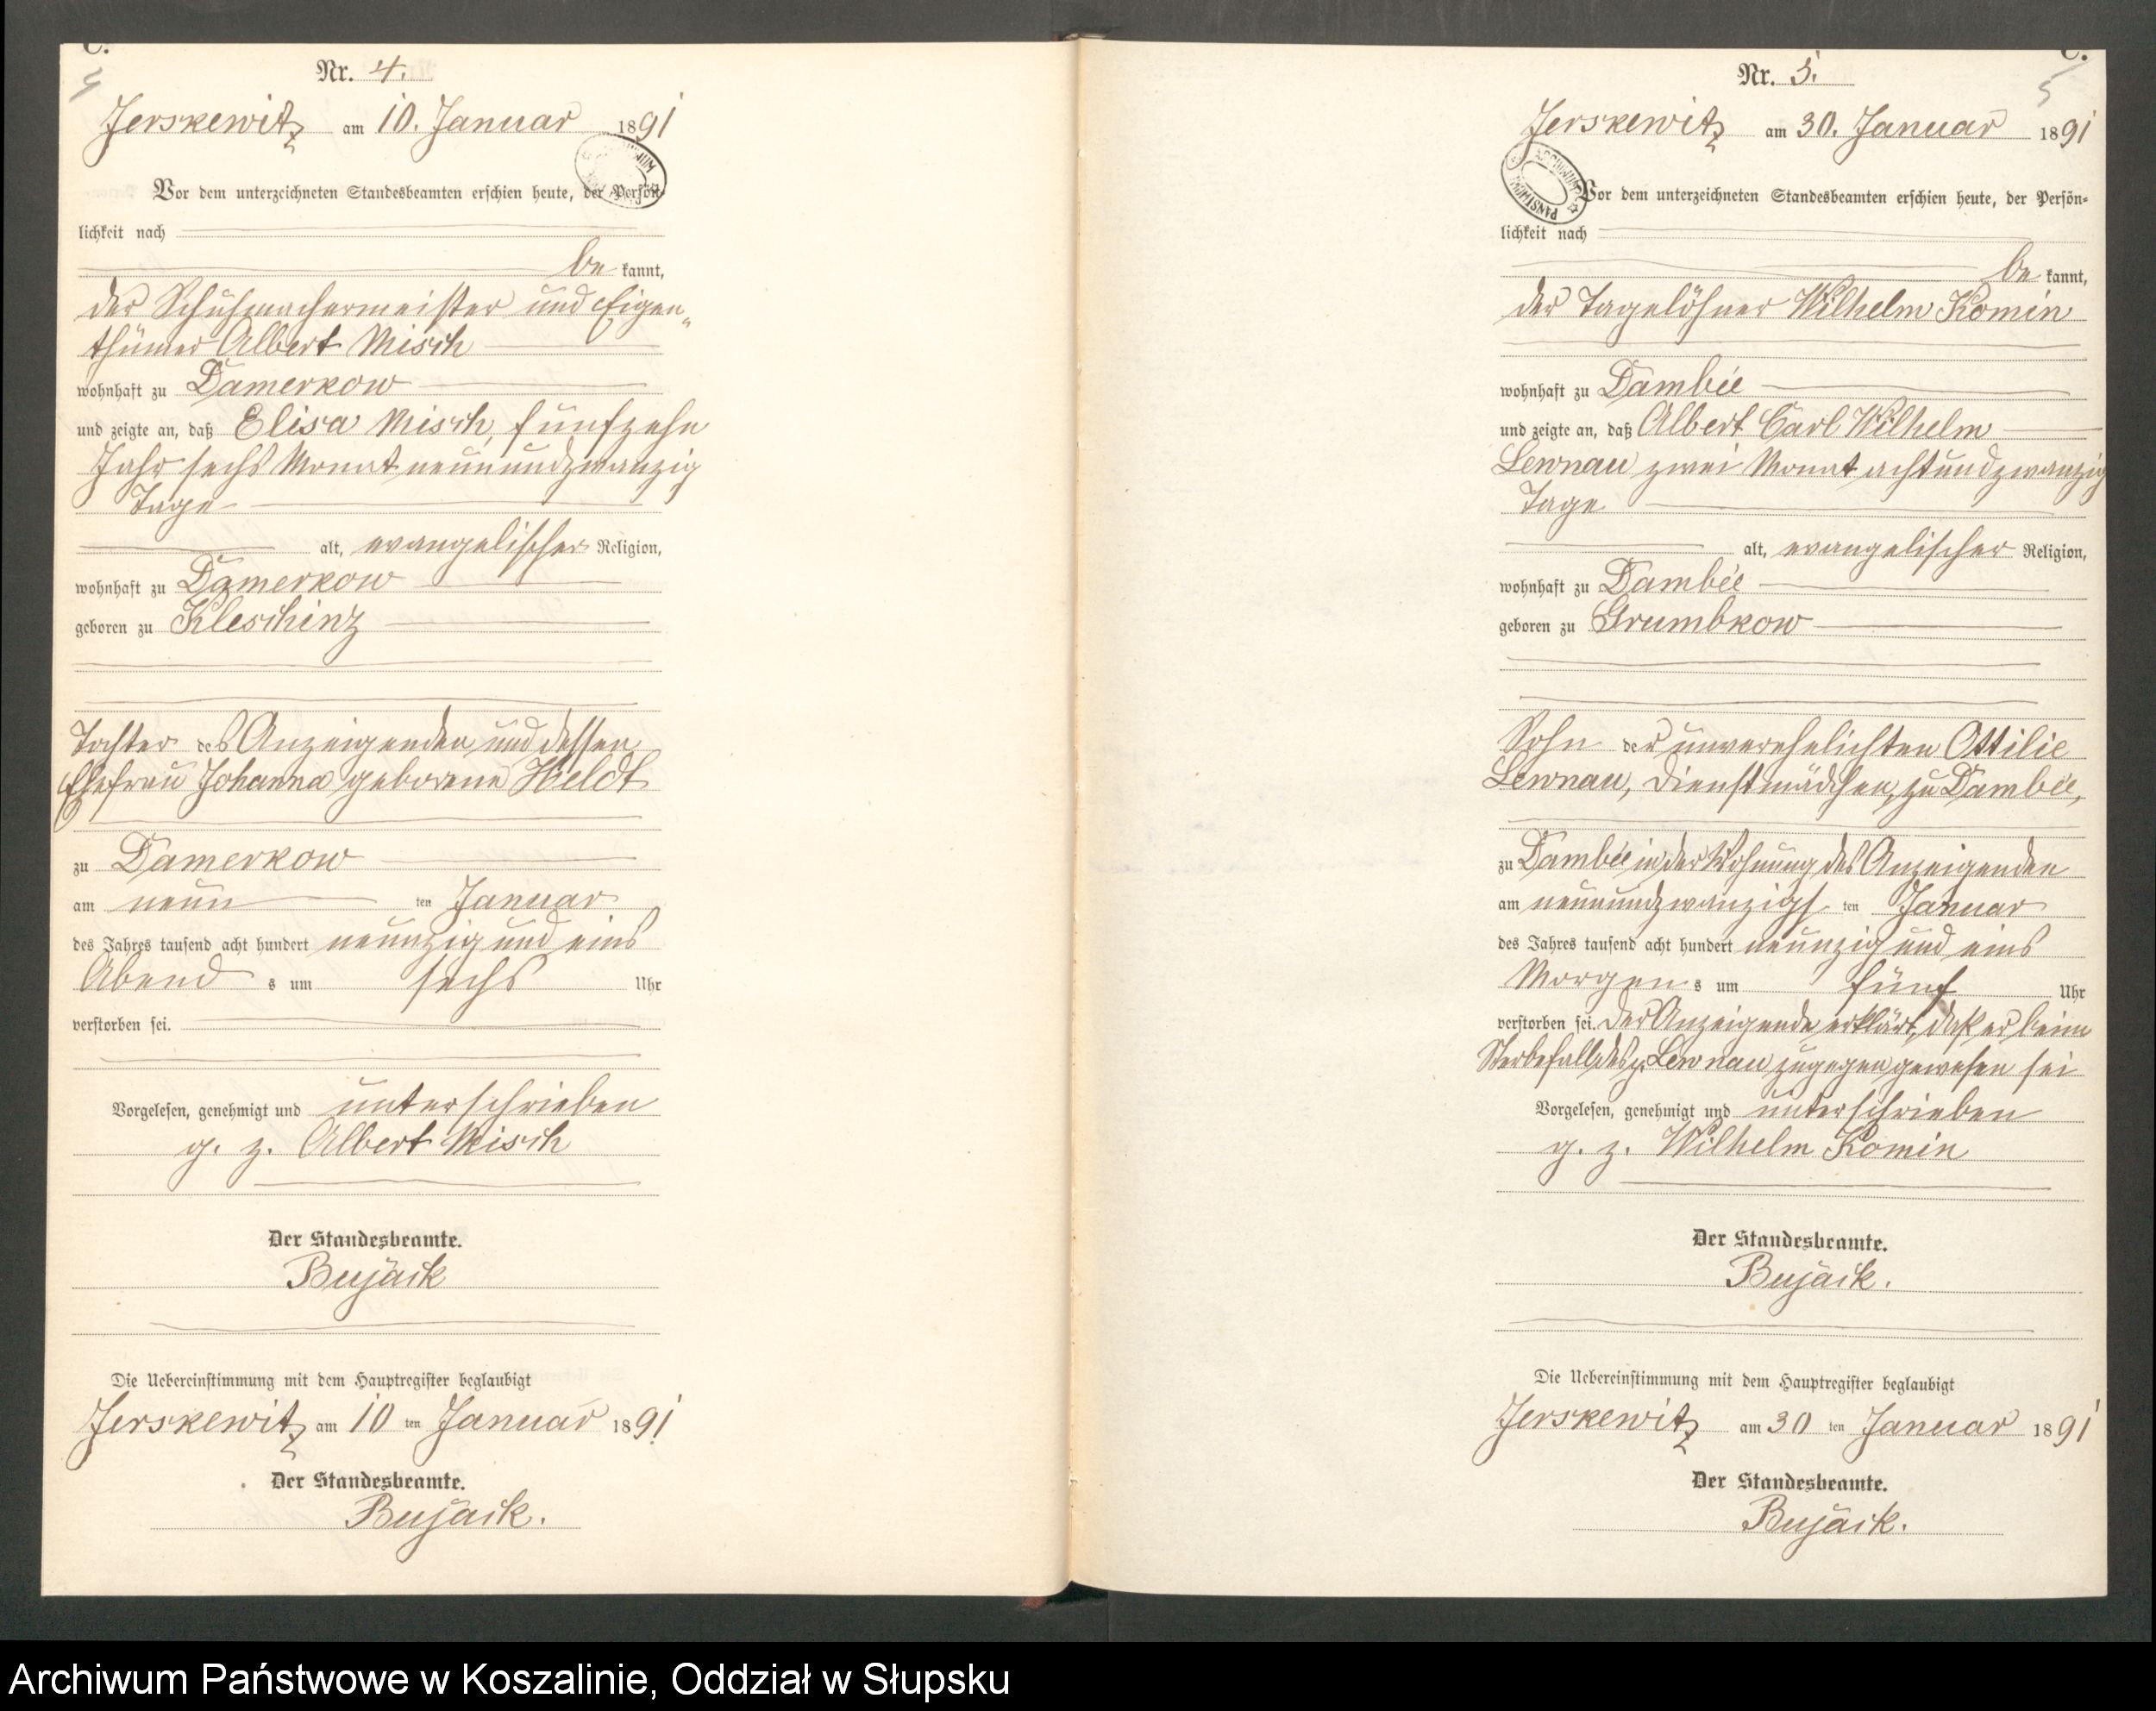 C.
Nr. 4.
Jerskewitz am 10. Januar 1891
Vor dem unterzeichneten Standesbeamten erschien heute, der Persön-
lichkeit nach
be kannt,
der Schuhmachermeister und Eigen-
thümer Albert Misch
wohnhaft zu Damerkow
und zeigte an, daß Elisa Misch, fünfzehn
Jahr sechs Monat neunundzwanzig
Tage
alt, evangelischer Religion,
wohnhaft zu Damerkow
geboren zu Kleschinz
Tochter des Anzeigenden und dessen
Ehefrau Johanna geborene Heldt
zu Damerkow
am neun ten Januar
des Jahres tausend acht hundert neunzig und eins
Abend s um sechs Uhr
verstorben sei.
Vorgelesen, genehmigt und unterschrieben
g. z. Albert Misch
Der Standesbeamte.
Bujack
Die Uebereinstimmung mit dem Hauptregister beglaubigt
Jerskewitz am 10 ten Januar 1891
Der Standesbeamte.
Bujack.
C.
5
Nr. 5.
Jerskewitz am 30. Januar 1891
Vor dem unterzeichneten Standesbeamten erschien heute, der Persön-
lichkeit nach
be kannt,
der Tagelöhner Wilhelm Komin
wohnhaft zu Dambée
und zeigte an, daß Albert Carl Wilhelm
Lewnau zwei Monat achtundzwanzig
Tage
alt, evangelischer Religion,
wohnhaft zu Dambée
geboren zu Grumbkow
Sohn der unverehelichten Ottilie
Lewnau, Dienstmädchen, zu Dambée,
zu Dambée in der Wohnung des Anzeigenden
am neunundzwanzigs ten Januar
des Jahres tausend acht hundert neunzig und eins
Morgen s um fünf Uhr
verstorben sei. Der Anzeigende erklärt, daß er beim
Sterbefall des p. Lewnau zugegen gewesen sei
Vorgelesen, genehmigt und unterschrieben
g. z. Wilhelm Komin
Der Standesbeamte.
Bujack.
Die Uebereinstimmung mit dem Hauptregister beglaubigt
Jerskewitz am 30 ten Januar 1891
Der Standesbeamte.
Bujack.
Archiwum Państwowe w Koszalinie, Oddział w Słupsku